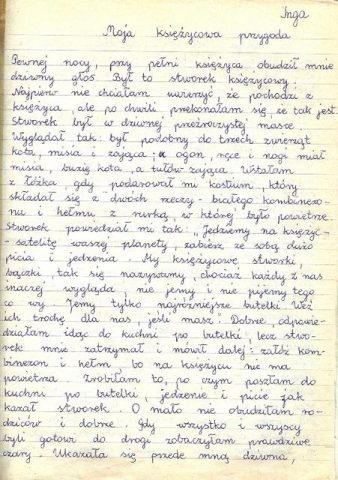 Inga
Moja księżycowa przygoda
Pewnej nocy, przy pełni księżyca obudził mnie
dziwny głos. Był to stworek księżycowy.
Najpierw nie chciałam uwierzyć, że pochodzi z
księżyca, ale po chwili przekonałam się, że tak jest.
Stworek był w dziwnej przeźroczystej masce.
Wyglądał tak: był podobny do trzech zwierząt
kota, misia i zająca: ogon, ręce i nogi miał
misia, buzię kota, a tułów zająca. Wstałam
z łóżka, gdy podarował mi kostium, który
składał się z dwóch rzeczy - białego kombinezo-
nu i hełmu z rurką, w której było powietrze.
Stworek powiedział mi tak: "Jedziemy na księżyc -
- satelitę waszej planety, zabierz ze sobą dużo
picia i jedzenia. My księżycowe stworki,
bajzki, tak się nazywamy, chociaż każdy z nas
inaczej wygląda, nie jemy i nie pijemy tego
co wy. Jemy tylko najróżniejsze butelki. Weź
ich trochę dla nas, jeśli masz". Dobrze, odpowie-
działam idąc do kuchni po butelki, lecz stwo-
rek mnie zatrzymał i mówił dalej: załóż kom-
binezon i hełm, bo na księżycu nie ma
powietrza. Zrobiłam to, po czym poszłam do
kuchni po butelki, jedzenie i picie jak
kazał stworek. O mało nie obudziłam ro-
dziców i dobrze. Gdy wszystko i wszyscy
byli gotowi do drogi zobaczyłam prawdziwe
czary. Ukazała się przede mną dziwna,